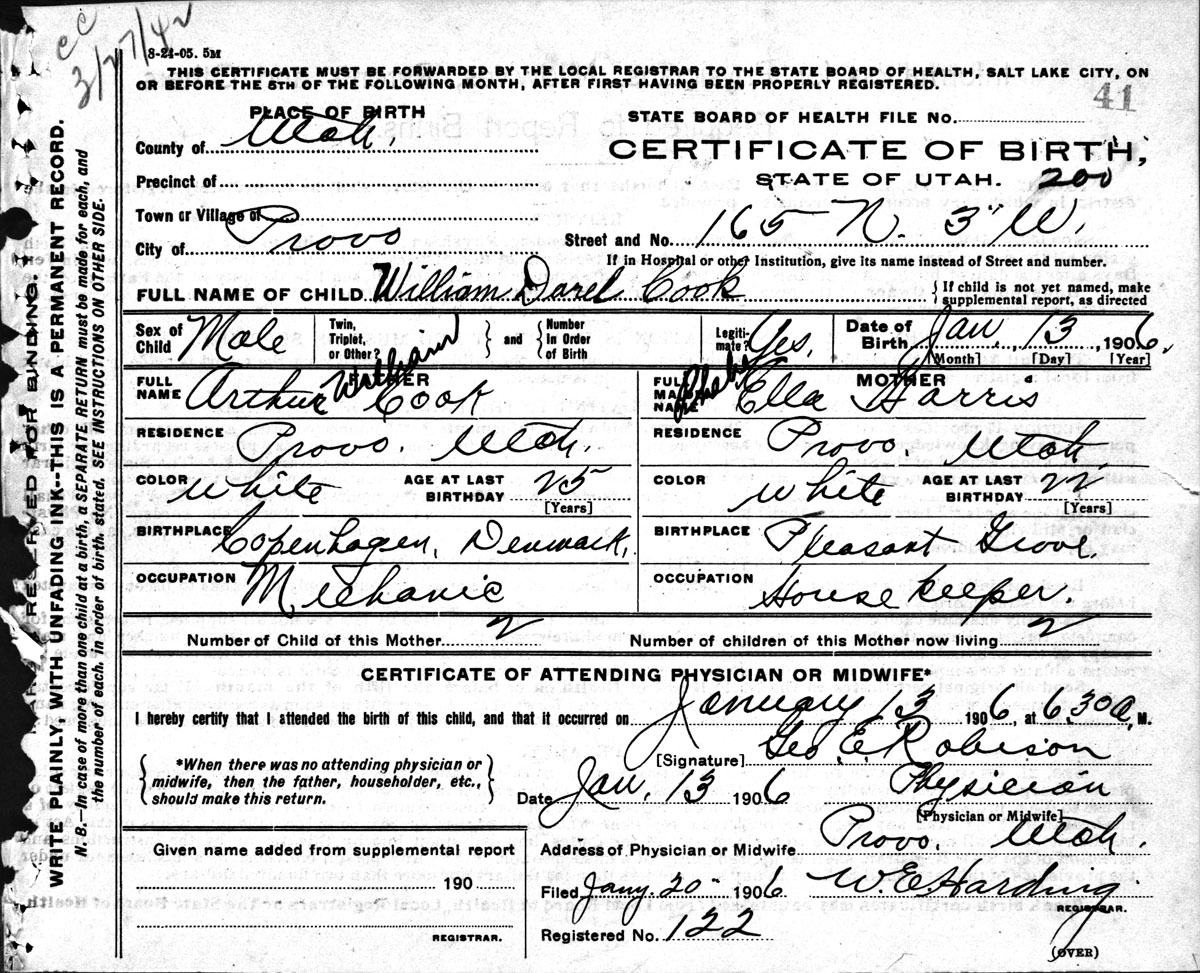 CC
3/27/42
8-24-05. 5M
THIS CERTIFICATE MUST BE FORWARDED BY THE LOCAL REGISTRAR TO THE STATE BOARD OF HEALTH, SALT LAKE CITY, ON
OR BEFORE THE 5TH OF THE FOLLOWING MONTH, AFTER FIRST HAVING BEEN PROPERLY REGISTERED.
41
PLACE OF BIRTH
STATE BOARD OF HEALTH FILE No.
County of Utah,
CERTIFICATE OF BIRTH,
Precinct of
STATE OF UTAH. 200
Town or Village of
City of Provo
Street and No. 165 N. 3" W.
If in Hospital or other Institution, give its name instead of Street and number.
FULL NAME OF CHILD William Darel Cook
{ If child is not yet named, make
supplemental report, as directed
Sex of Child Male
Twin, Triplet, or Other?
} and { Number In Order of Birth
Legiti-mate? Yes.
Date of Birth Jan. 13, 1906.
[Month] [Day] [Year]
FATHER
FULL NAME Arthur William Cook
MOTHER
FULL MAIDEN NAME Phebe Ella Harris
RESIDENCE Provo. Utah.
RESIDENCE Provo. Utah
COLOR White AGE AT LAST BIRTHDAY 25 [Years]
COLOR White AGE AT LAST BIRTHDAY 22 [Years]
BIRTHPLACE Copenhagen, Denmark.
BIRTHPLACE Pleasant Grove.
OCCUPATION Mechanic
OCCUPATION House keeper.
Number of Child of this Mother 2
Number of children of this Mother now living 2
CERTIFICATE OF ATTENDING PHYSICIAN OR MIDWIFE*
I hereby certify that I attended the birth of this child, and that it occurred on January 13 1906, at 6.30 a. M.
{ *When there was no attending physician or
midwife, then the father, householder, etc.,
should make this return. }
[Signature] Geo. E. Robison
Date Jan. 13 1906 Physician
[Physician or Midwife]
Given name added from supplemental report
190
REGISTRAR.
Address of Physician or Midwife Provo. Utah.
Filed Jany. 20" 1906 W. E. Harding
REGISTRAR.
Registered No. 122
(OVER)
RESERVED FOR BINDING.
WRITE PLAINLY, WITH UNFADING INK--THIS IS A PERMANENT RECORD.
N. B.—In case of more than one child at a birth, a SEPARATE RETURN must be made for each, and
the number of each, in order of birth, stated. SEE INSTRUCTIONS ON OTHER SIDE.